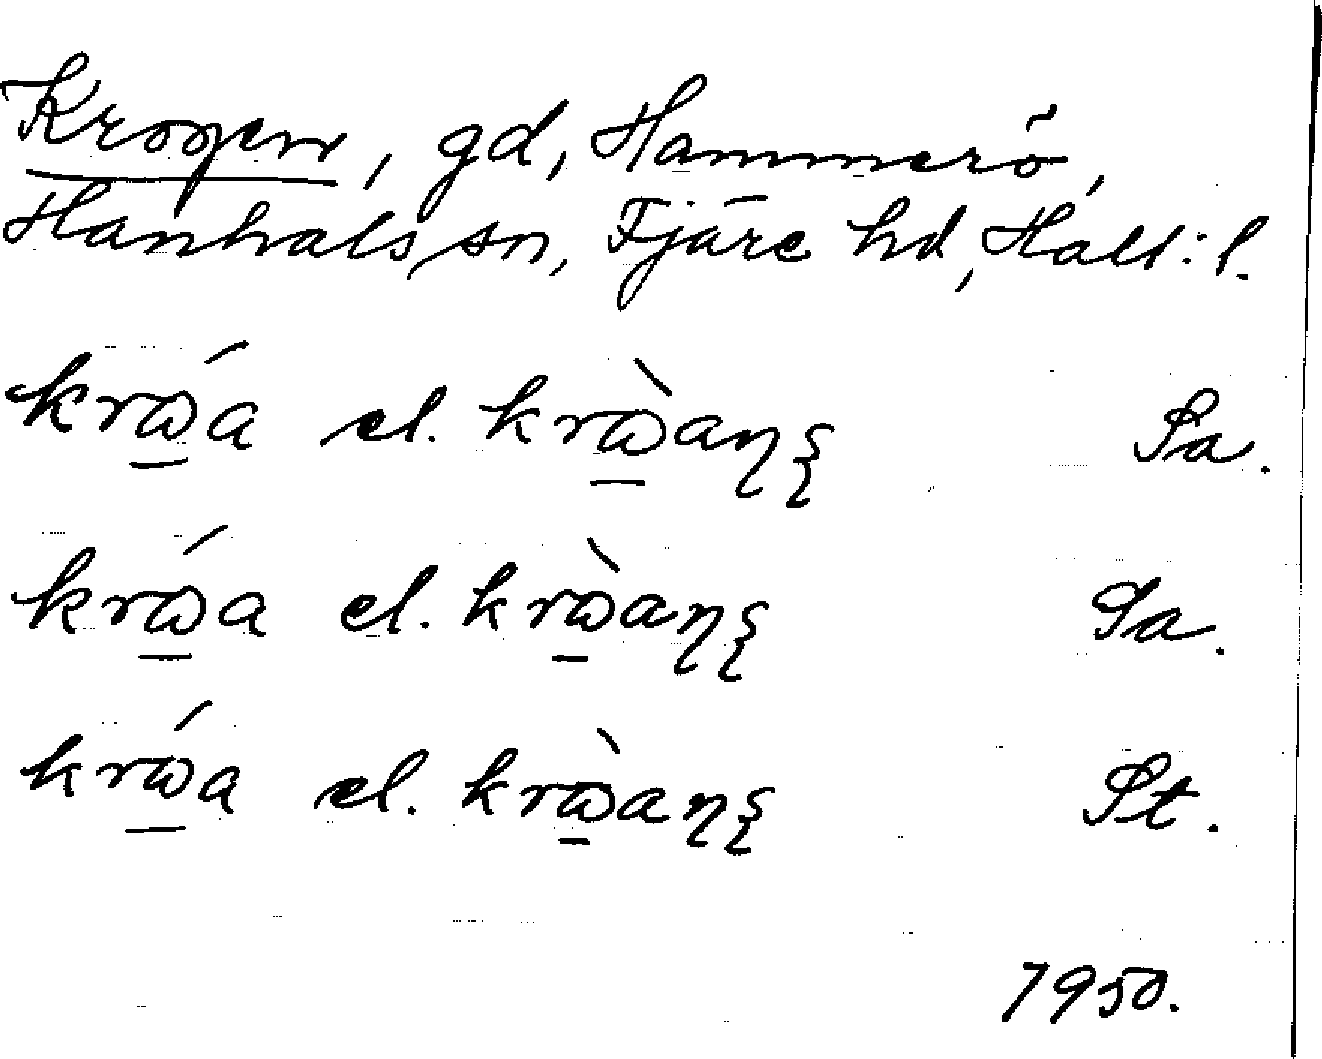 Krogen, gd, Hammerö,
Hanhals sn, Fjäre hd, Hall: l.
krɷ̲́a el. krɷ̲̀aƞξ Pa.
krɷ̲́a el. krɷ̲̀aƞξ Pa.
krɷ̲́a el. krɷ̲̀aƞξ Pt.
1950.